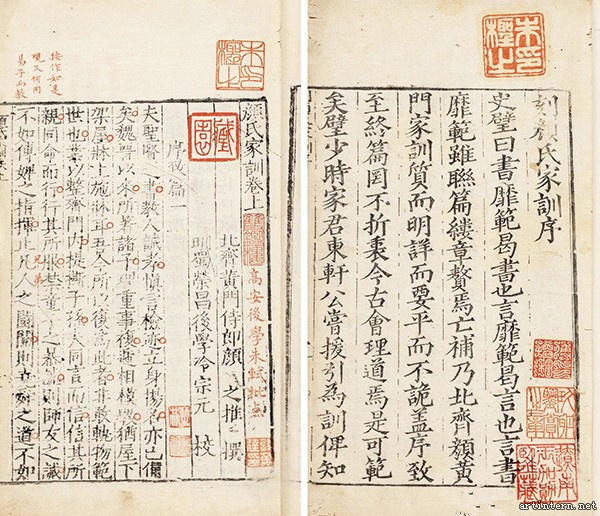 刻顏氏家訓序
史璧曰書靡範曷書也言靡範曷言也言書
靡範雖聯篇縷章贅焉亡補乃北齊顏黃
門家訓質而明詳而要平而不詭蓋序致
至終篇罔不折衷今古會理道焉是可範
矣璧少時家君東軒公嘗援引為訓俾知
顏氏家訓卷上
北齊黃門侍郎顏之推撰
高安後學朱軾批點
明蜀榮昌後學冷宗元校
序致篇一
夫聖賢之書教人誠孝慎言檢迹立身揚名亦已備
矣魏晉以來所著諸子理重事複遞相模斆猶屋下
架屋牀上施牀耳吾今所以復為此者非敢軌物範
世也業以整齊門內提撕子孫夫同言而信信其所
親同命而行行其所服禁童子之暴謔則師友之誡
不如傅婢之指揮止凡人之鬬鬩則堯舜之道不如
兄弟
作如是
觀又何用
易子而教
artintern.net